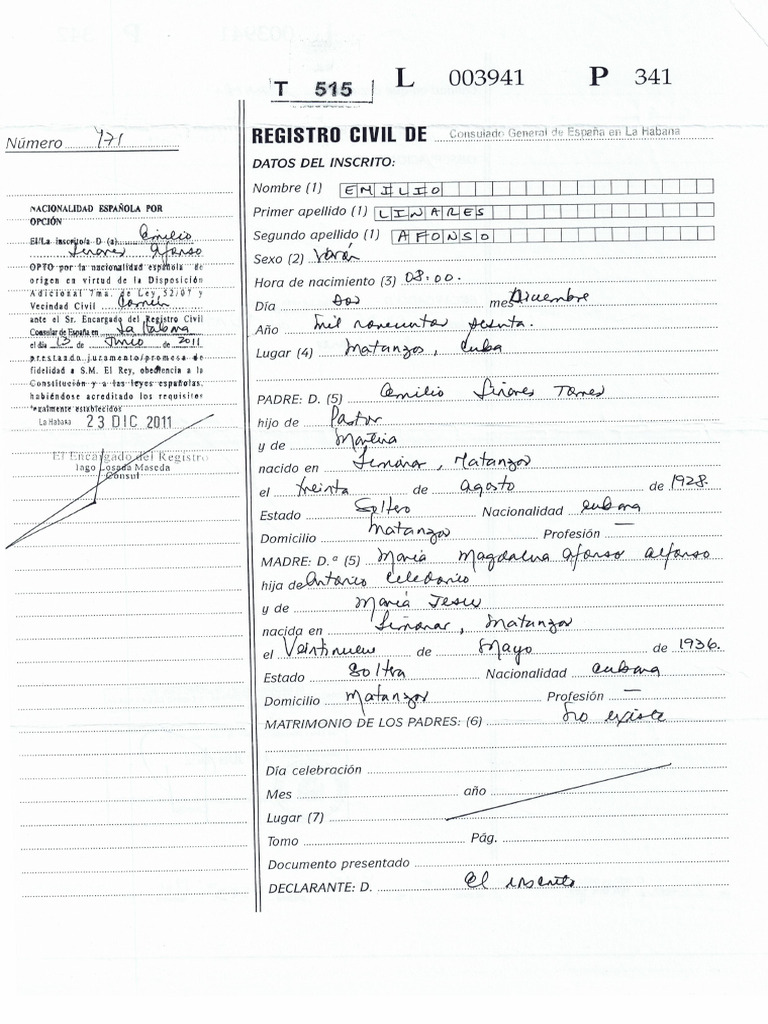 T 515 L 003941 P 341
Número 471
NACIONALIDAD ESPAÑOLA POR
OPCIÓN
El/La inscrito/a D (a) Emilio
Linares Afonso
OPTO por la nacionalidad española de
origen en virtud de la Disposición
Adicional 7ma. de Ley 52/07 y
Vecindad Civil Común
ante el Sr. Encargado del Registro Civil
Consular de España en La Habana
el día 13 de Junio de 2011
prestando juramento/promesa de
fidelidad a S.M. El Rey, obediencia a la
Constitución y a las leyes españolas,
habiéndose acreditado los requisitos
legalmente establecidos
La Habana 23 DIC 2011
El Encargado del Registro
Iago Losada Maseda
Consul
REGISTRO CIVIL DE Consulado General de España en La Habana
DATOS DEL INSCRITO:
Nombre (1) EMILIO
Primer apellido (1) LINARES
Segundo apellido (1) AFONSO
Sexo (2) Varón
Hora de nacimiento (3) 08:00.
Día Dos mes Diciembre
Año mil novecientos sesenta.
Lugar (4) Matanzas, Cuba
PADRE: D. (5) Emilio Linares Torres
hijo de Pastor
y de Martina
nacido en Limonar, Matanzas
el treinta de agosto de 1928.
Estado Soltero Nacionalidad cubana
Domicilio Matanzas Profesión —
MADRE: D.ª (5) María Magdalena Afonso Alfonso
hija de Antonio Celedonio
y de María Jesús
nacida en Limonar, Matanzas
el Veintinueve de Mayo de 1936.
Estado Soltera Nacionalidad cubana
Domicilio Matanzas Profesión —
MATRIMONIO DE LOS PADRES: (6) No existe
Día celebración
Mes año
Lugar (7)
Tomo Pág.
Documento presentado
DECLARANTE: D. El inscrito